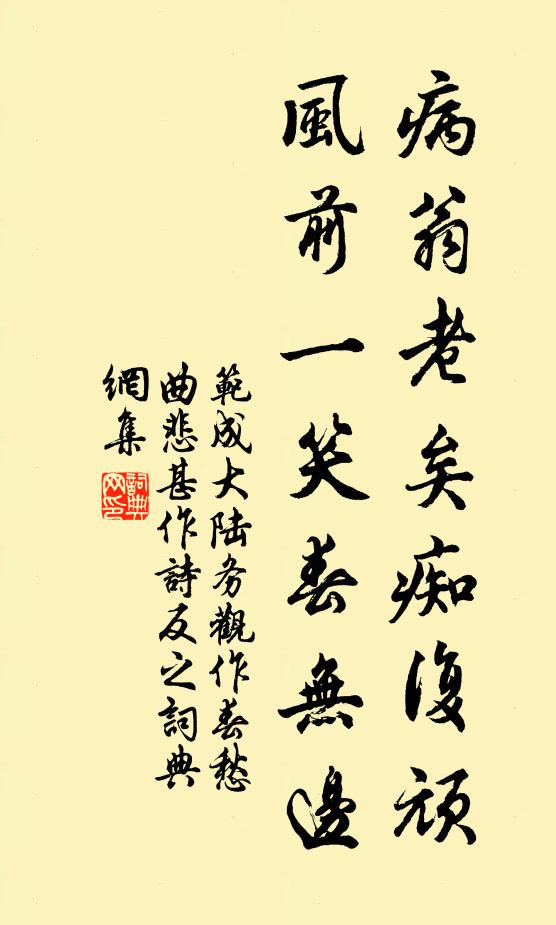 病翁老矣痴復頑
風前一笑春無邊
範成大陸務觀作春愁
曲悲甚作詩反之詞典
網集
詞典
网印